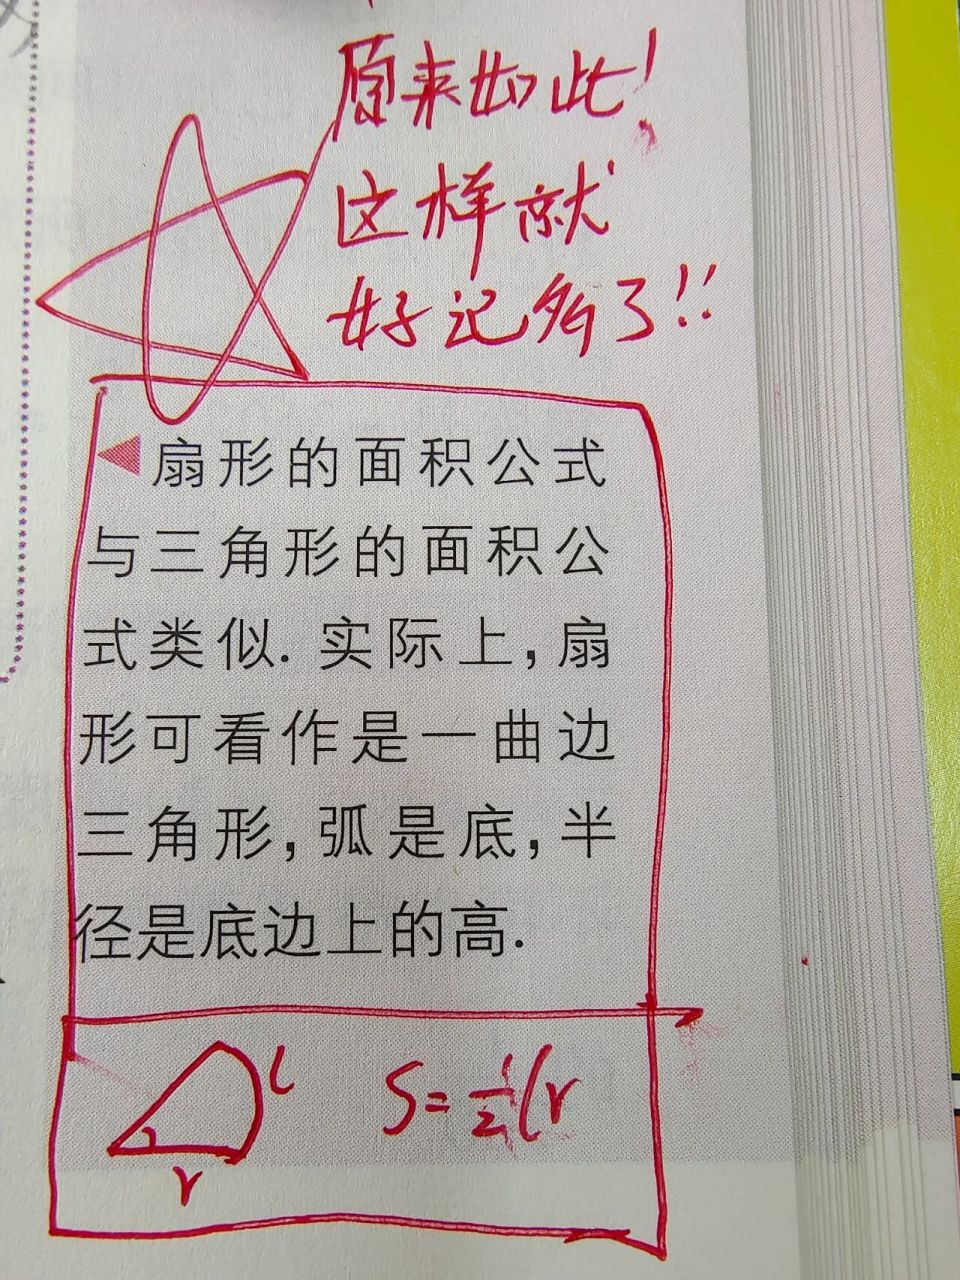 原来如此!
这样就
好记多了!!
扇形的面积公式
与三角形的面积公
式类似. 实际上,扇
形可看作是一曲边
三角形,弧是底,半
径是底边上的高.
l
r
S=½lr